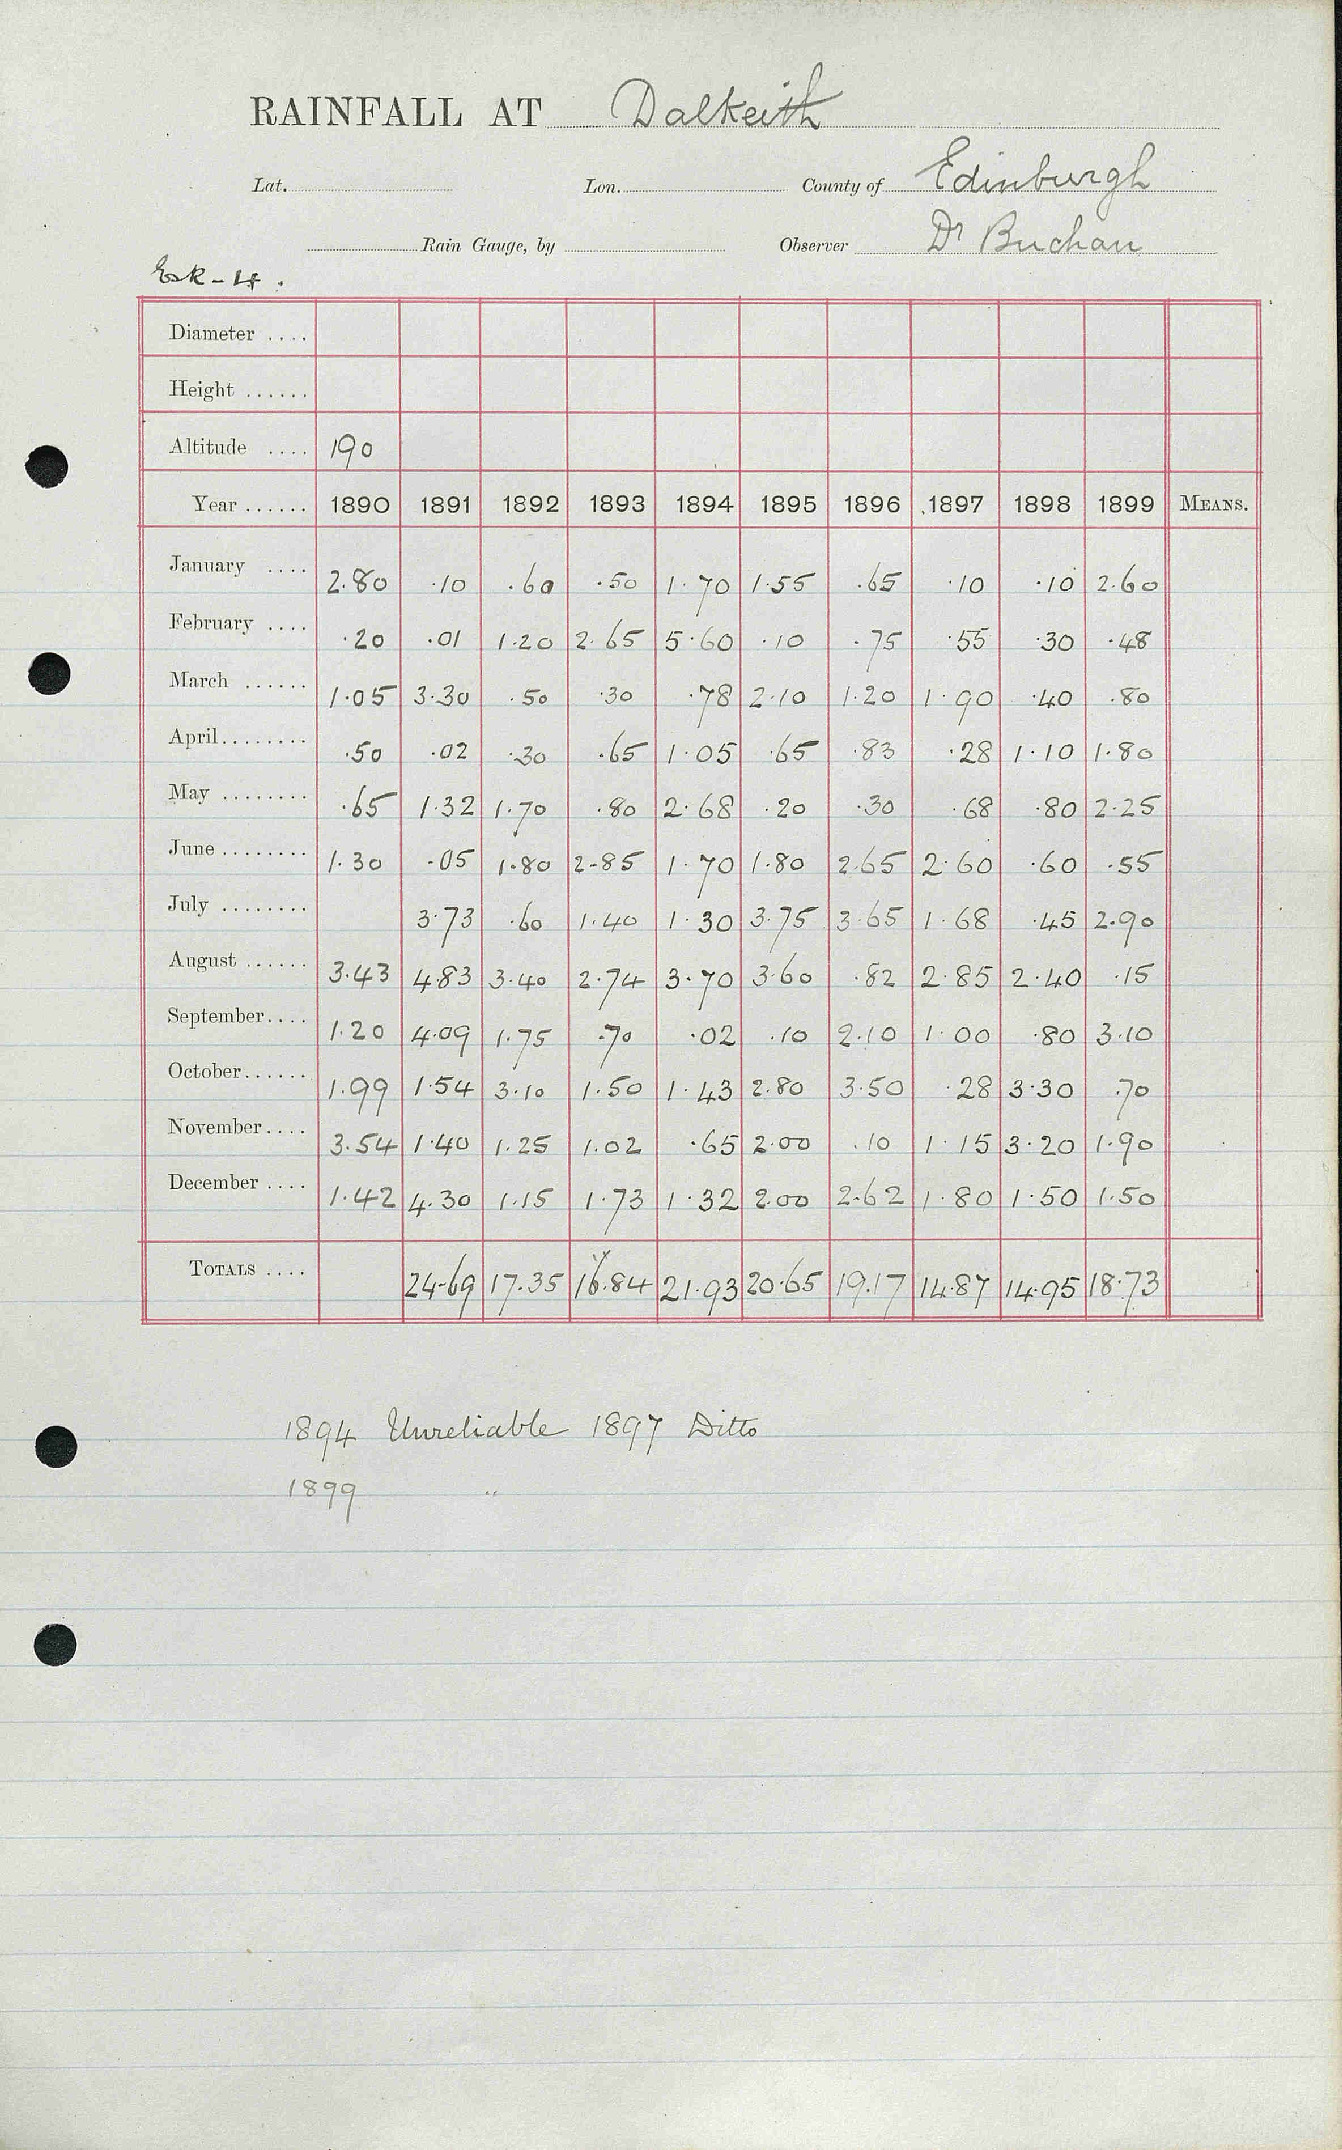 RAINFALL AT Dalkeith
Lat. Lon. County of Edinburgh
Rain Gauge, by Observer Dr Buchan
Esk-4.
Diameter ....
Height ......
Altitude .... 190
Year ...... 1890 1891 1892 1893 1894 1895 1896 1897 1898 1899 MEANS.
January .... 2.80 .10 .60 .50 1.70 1.55 .65 .10 .10 2.60
February .... .20 .01 1.20 2.65 5.60 .10 .75 .55 .30 .48
March ...... 1.05 3.30 .50 .30 .78 2.10 1.20 1.90 .40 .80
April........ .50 .02 .30 .65 1.05 .65 .83 .28 1.10 1.80
May ........ .65 1.32 1.70 .80 2.68 .20 .30 .68 .80 2.25
June ........ 1.30 .05 1.80 2.85 1.70 1.80 2.65 2.60 .60 .55
July ........ 3.73 .60 1.40 1.30 3.75 3.65 1.68 .45 2.90
August ...... 3.43 4.83 3.40 2.74 3.70 3.60 .82 2.85 2.40 .15
September.... 1.20 4.09 1.75 .70 .02 .10 2.10 1.00 .80 3.10
October...... 1.99 1.54 3.10 1.50 1.43 2.80 3.50 .28 3.30 .70
November.... 3.54 1.40 1.25 1.02 .65 2.00 .10 1.15 3.20 1.90
December .... 1.42 4.30 1.15 1.73 1.32 2.00 2.62 1.80 1.50 1.50
TOTALS .... 24.69 17.35 16.84 21.93 20.65 19.17 14.87 14.95 18.73
1894 Unreliable 1897 Ditto
1899 "